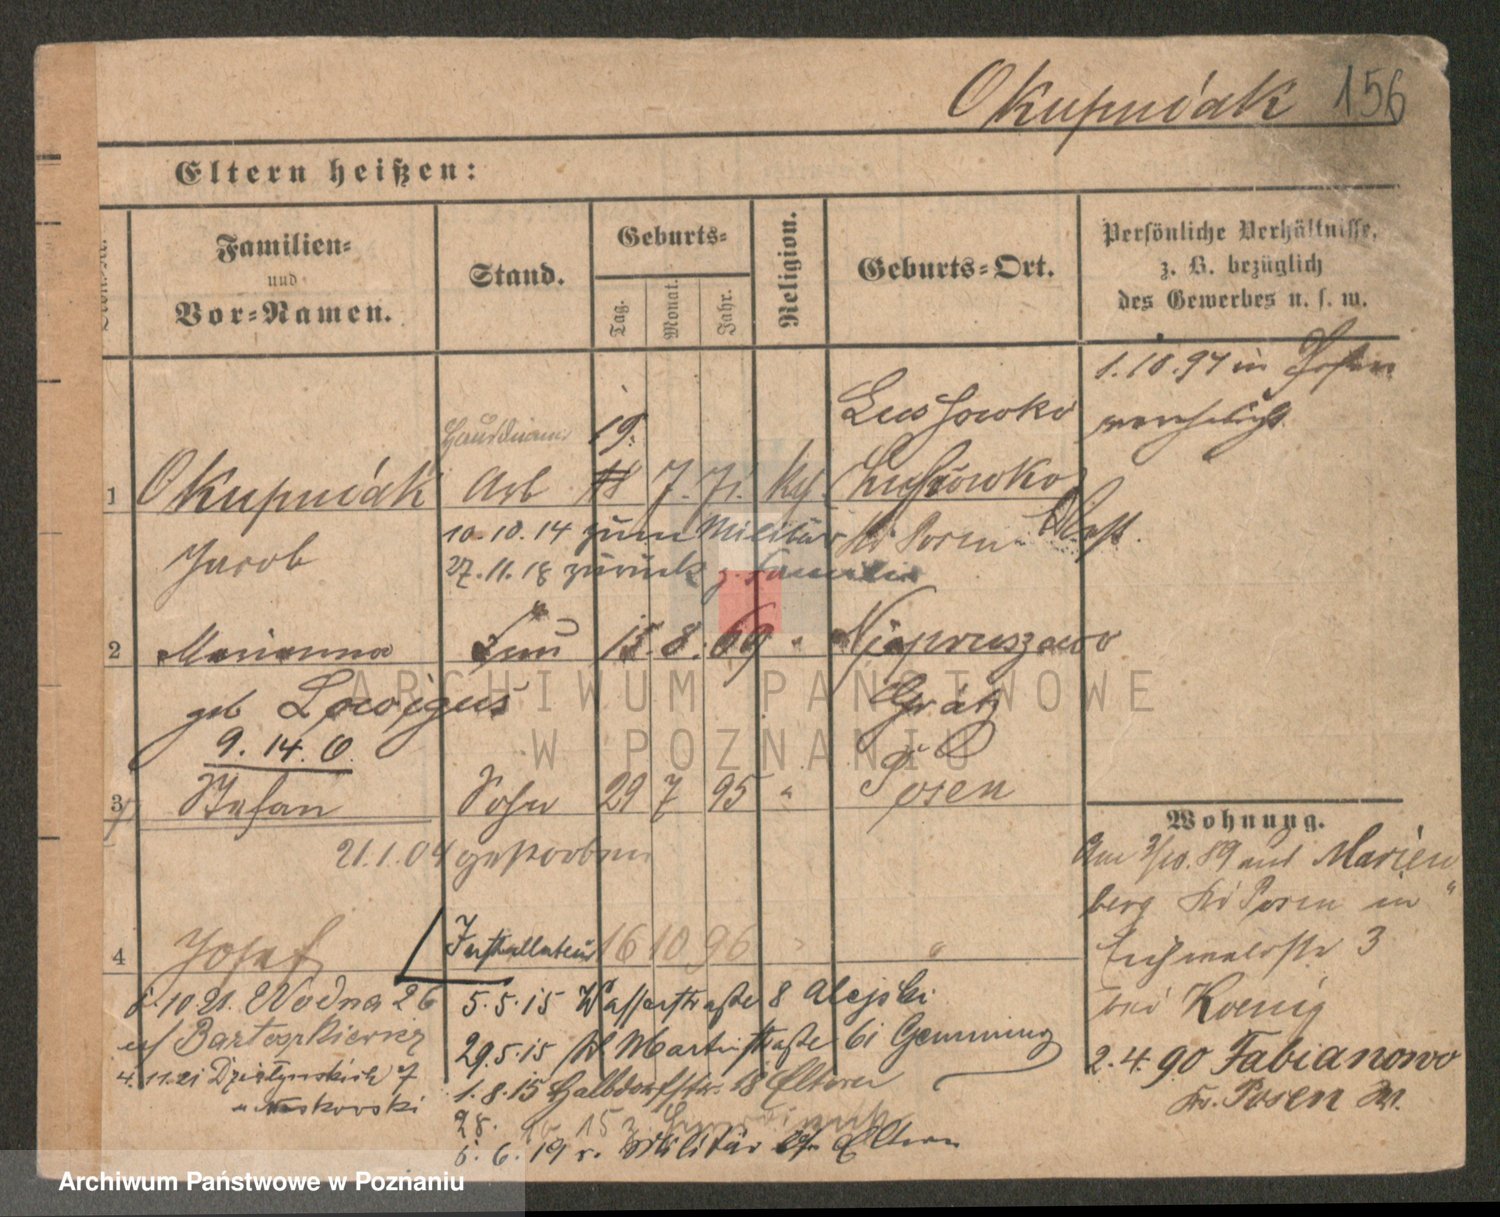 Okupniak 156
Eltern heißen:
Familien=
und
Vor=Namen.
Stand.
Geburts=
Tag.
Monat.
Jahr.
Religion.
Geburts=Ort.
Persönliche Verhältnisse,
z. B. bezüglich
des Gewerbes u. s. w.
1.10.97 in Posen
verehelicht
19.
Lussowko
1 Okupniak Arb 7. 71. Kath. Lussowko
Jacob
10.10.14 zum Militär
Kr Posen West.
27.11.18 zurück z. Familie
2 Marianna Frau 15. 8. 69 " Niepruszewo
geb Lowigus
Grätz
9. 14. 6.
3 Stefan Sohn 29 7 95 " Posen
21.1.04 gestorben
4 Josef Installateur 16 10 96 " "
Wohnung.
Am 3/10.89 aus Marien
berg Kr Posen in
Eichwaldstr 3
bei Koenig
2.4.90 Fabianowo
Kr. Posen W.
6.10.21. Wodna 26
bei Bartoszkiewicz
4.11.21 Działyńskich 7
5.5.15 Wasserstraße 8 Alejski
29.5.15 St Martinstraße 61 Gemming
1.8.15 Halbdorfstr. 18 Eltern
28.
6. 6. 19 v. Militär Eltern
ARCHIWUM PAŃSTWOWE
W POZNANIU
Archiwum Państwowe w Poznaniu